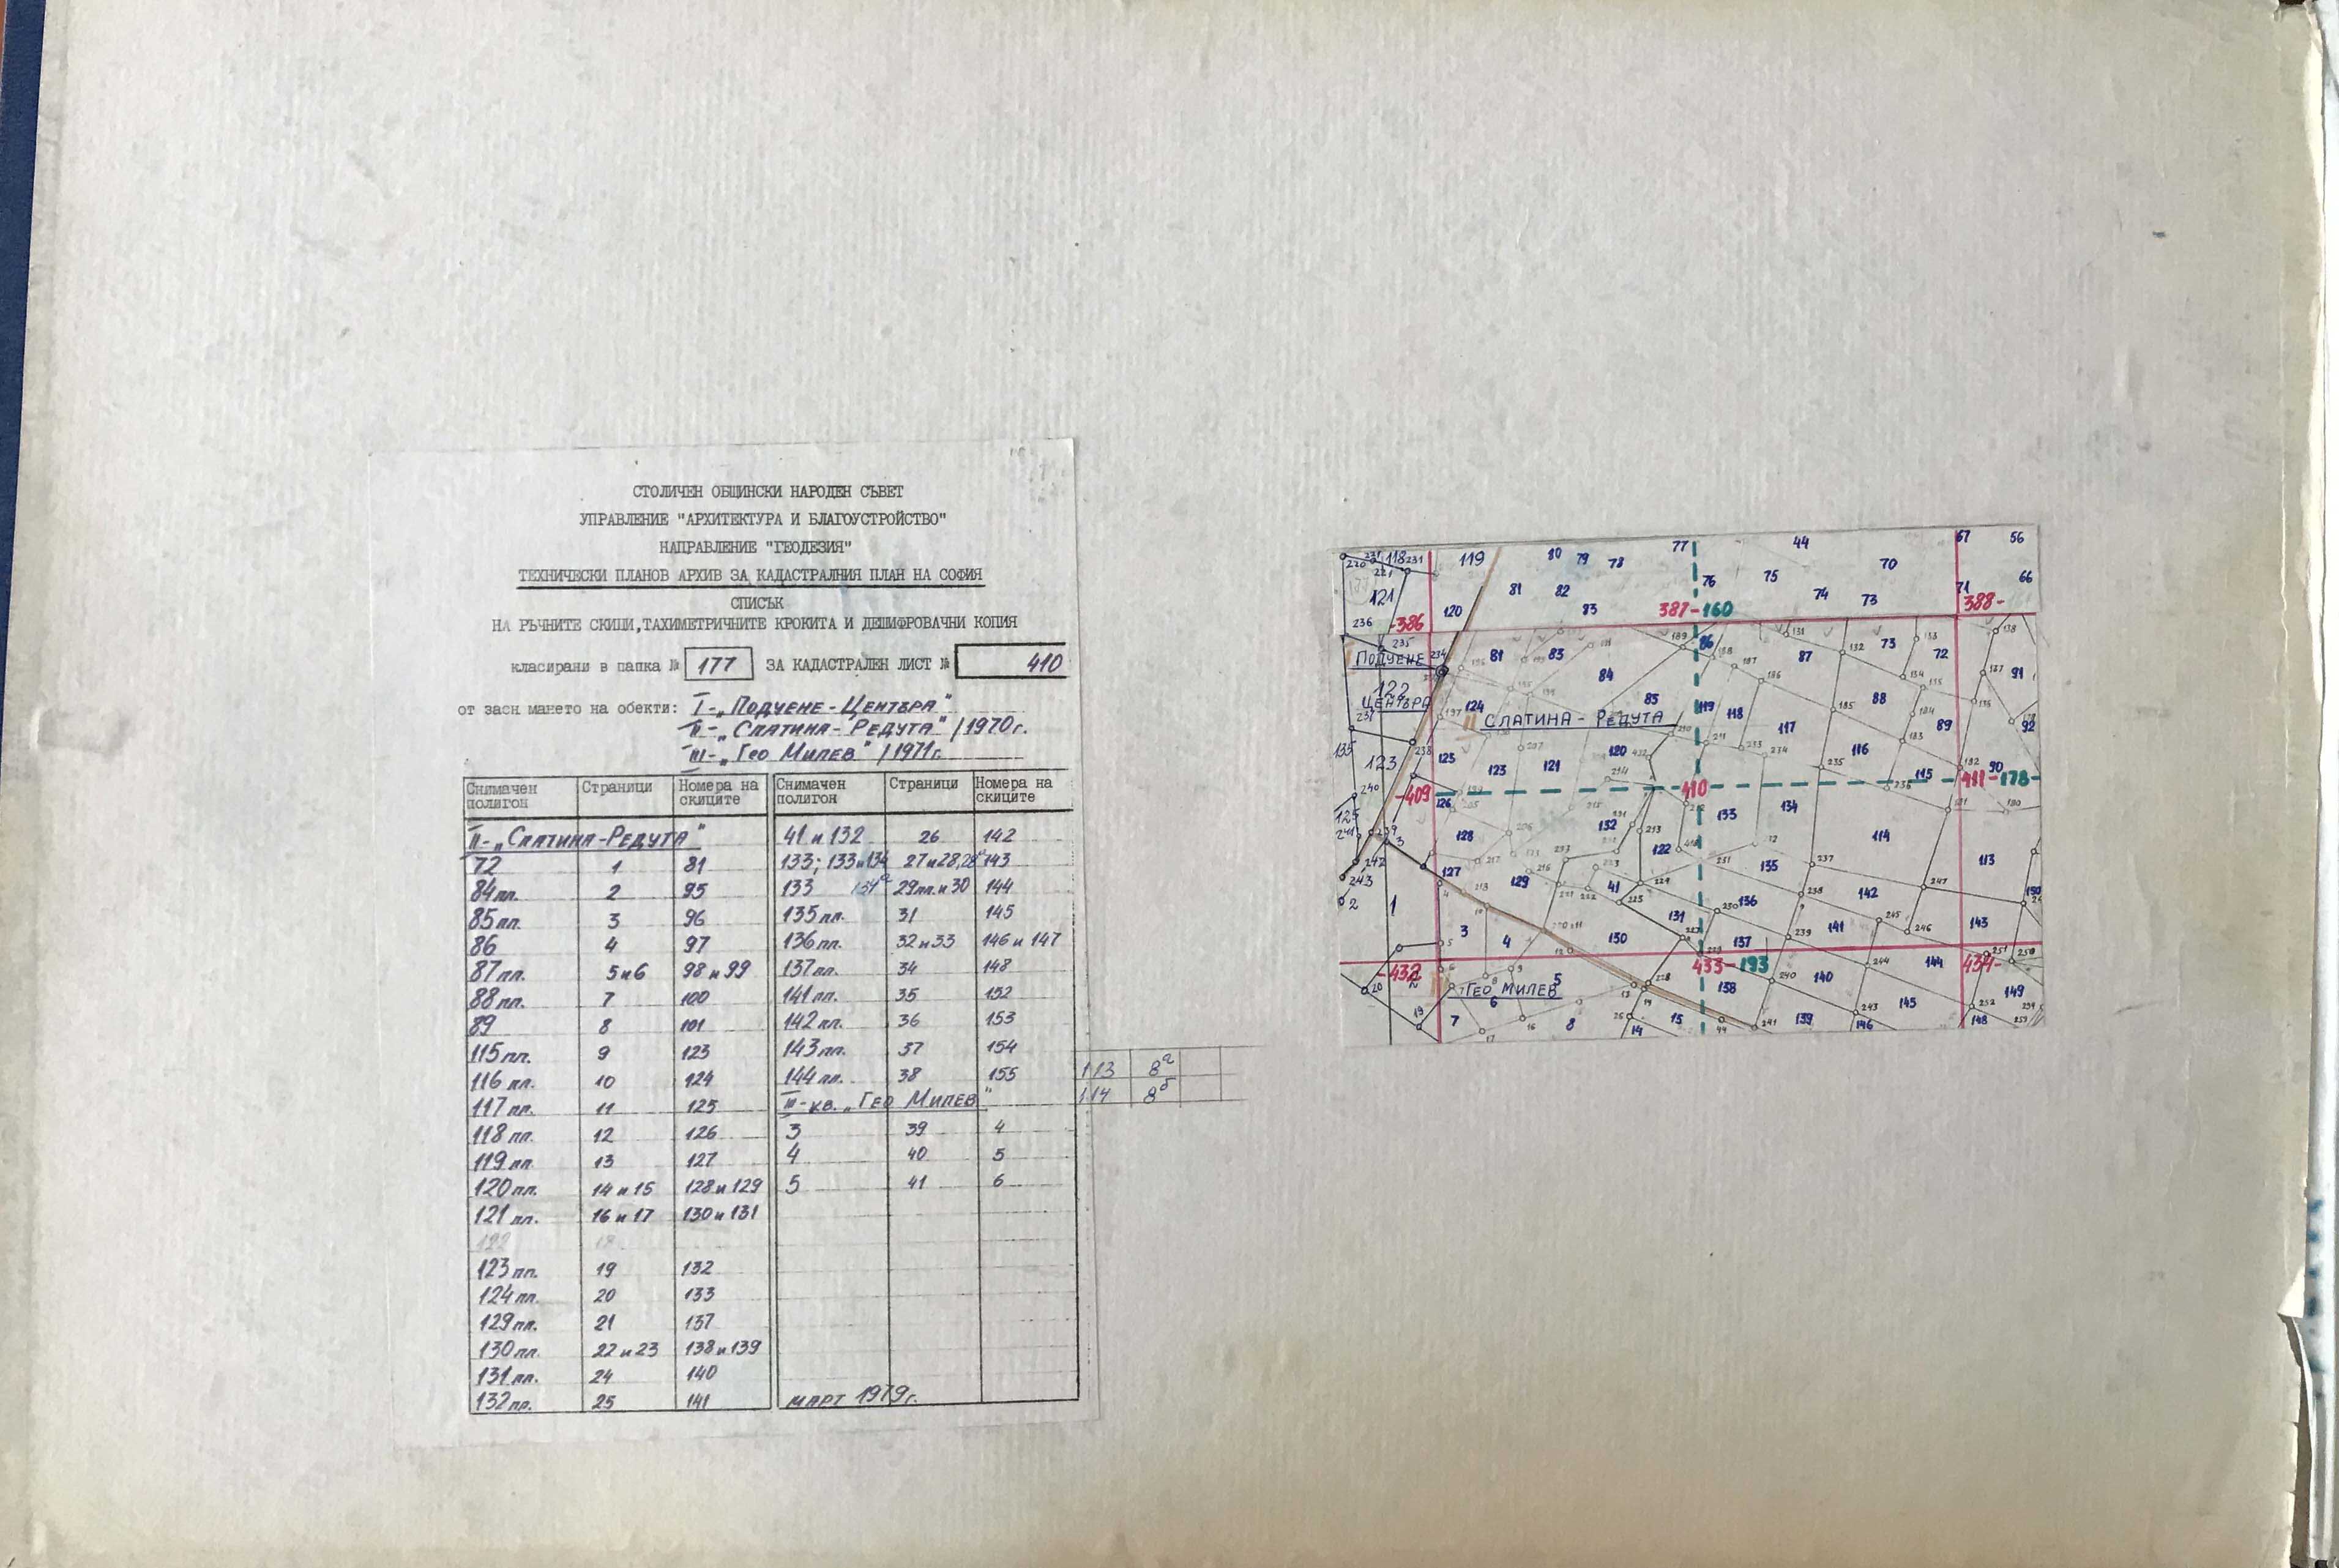 СТОЛИЧЕН ОБЩИНСКИ НАРОДЕН СЪВЕТ
УПРАВЛЕНИЕ "АРХИТЕКТУРА И БЛАГОУСТРОЙСТВО"
НАПРАВЛЕНИЕ "ГЕОДЕЗИЯ"
ТЕХНИЧЕСКИ ПЛАНОВ АРХИВ ЗА КАДАСТРАЛНИЯ ПЛАН НА СОФИЯ
СПИСЪК
НА РЪЧНИТЕ СКИЦИ, ТАХИМЕТРИЧНИТЕ КРОКИТА И ДЕШИФРОВАЧНИ КОПИЯ
класирани в папка № 177 ЗА КАДАСТРАЛЕН ЛИСТ № 410
от засн мането на обекти: I-„Подуене-Центъра"
II-„Слатина-Редута" /1970г.
III-„Гео Милев" /1971г.
Снимачен полигон Страници Номера на скиците Снимачен полигон Страници Номера на скиците
II-„Слатина-Редута" 41 и 132 26 142
72 1 81 133; 133 и 134 27 и 28, 28а 143
84 пл. 2 95 133 134а 29пл. и 30 144
85 пл. 3 96 135 пл. 31 145
86 4 97 136 пл. 32 и 33 146 и 147
87 пл. 5 и 6 98 и 99 137 пл. 34 148
88 пл. 7 100 141 пл. 35 152
89 8 101 142 пл. 36 153
115 пл. 9 123 143 пл. 37 154
116 пл. 10 124 144 пл. 38 155
117 пл. 11 125 III-кв. „Гео Милев"
118 пл. 12 126 3 39 4
119 пл. 13 127 4 40 5
120 пл. 14 и 15 128 и 129 5 41 6
121 пл. 16 и 17 130 и 131
122 18
123 пл. 19 132
124 пл. 20 133
129 пл. 21 137
130 пл. 22 и 23 138 и 139
131 пл. 24 140
132 пл. 25 141 МАРТ 1979г.
113 8а
114 8б
119 80 79 78 77 44 70 67 56
121 81 82 76 75 71 66
236 120 83 74 73
-386 387-160 388-
Подуене
81 83 86 87 73 72 91
122 84 85 88
Центъра
124 119 118 117 89 92
II Слатина-Редута
135 123 125 123 121 120 116 115 90
-409 126 410 411-178
125 128 132 133 134 114
122 135 113
243 127 129 41 136 142 150
2 1 3 4 130 131 137 141 143
-432 433-193 434-
III Гео Милев 5 138 140 144 149
6 7 8 14 15 139 146 145 148